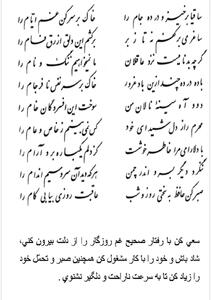 ساقیا برخیز و درده جام را
خاک بر سر کن غم ایام را
ساغر می بر کفم نه تا ز بر
برکشم این دلق ازرق فام را
گرچه بدنامیست نزد عاقلان
ما نمی‌خواهیم ننگ و نام را
باده درده چند ازین باد غرور
خاک بر سر نفس نافرجام را
دود آه سینهٔ نالان من
سوخت این افسردگان خام را
محرم راز دل شیدای خود
کس نمی‌بینم ز خاص و عام را
با دلارامی مرا خاطر خوشست
کز دلم یکباره برد آرام را
ننگرد دیگر به سرو اندر چمن
هر که دید آن سرو سیم اندام را
صبر کن حافظ به سختی روز و شب
عاقبت روزی بیابی کام را
سعي کن با رفتار صحيح غم روزگار را از دلت بيرون کني،
شاد باش و خود را با کار مشغول کن همچنين صبر و تحمّل خود
را زياد کن تا به سرعت ناراحت و دلگير نشوي .